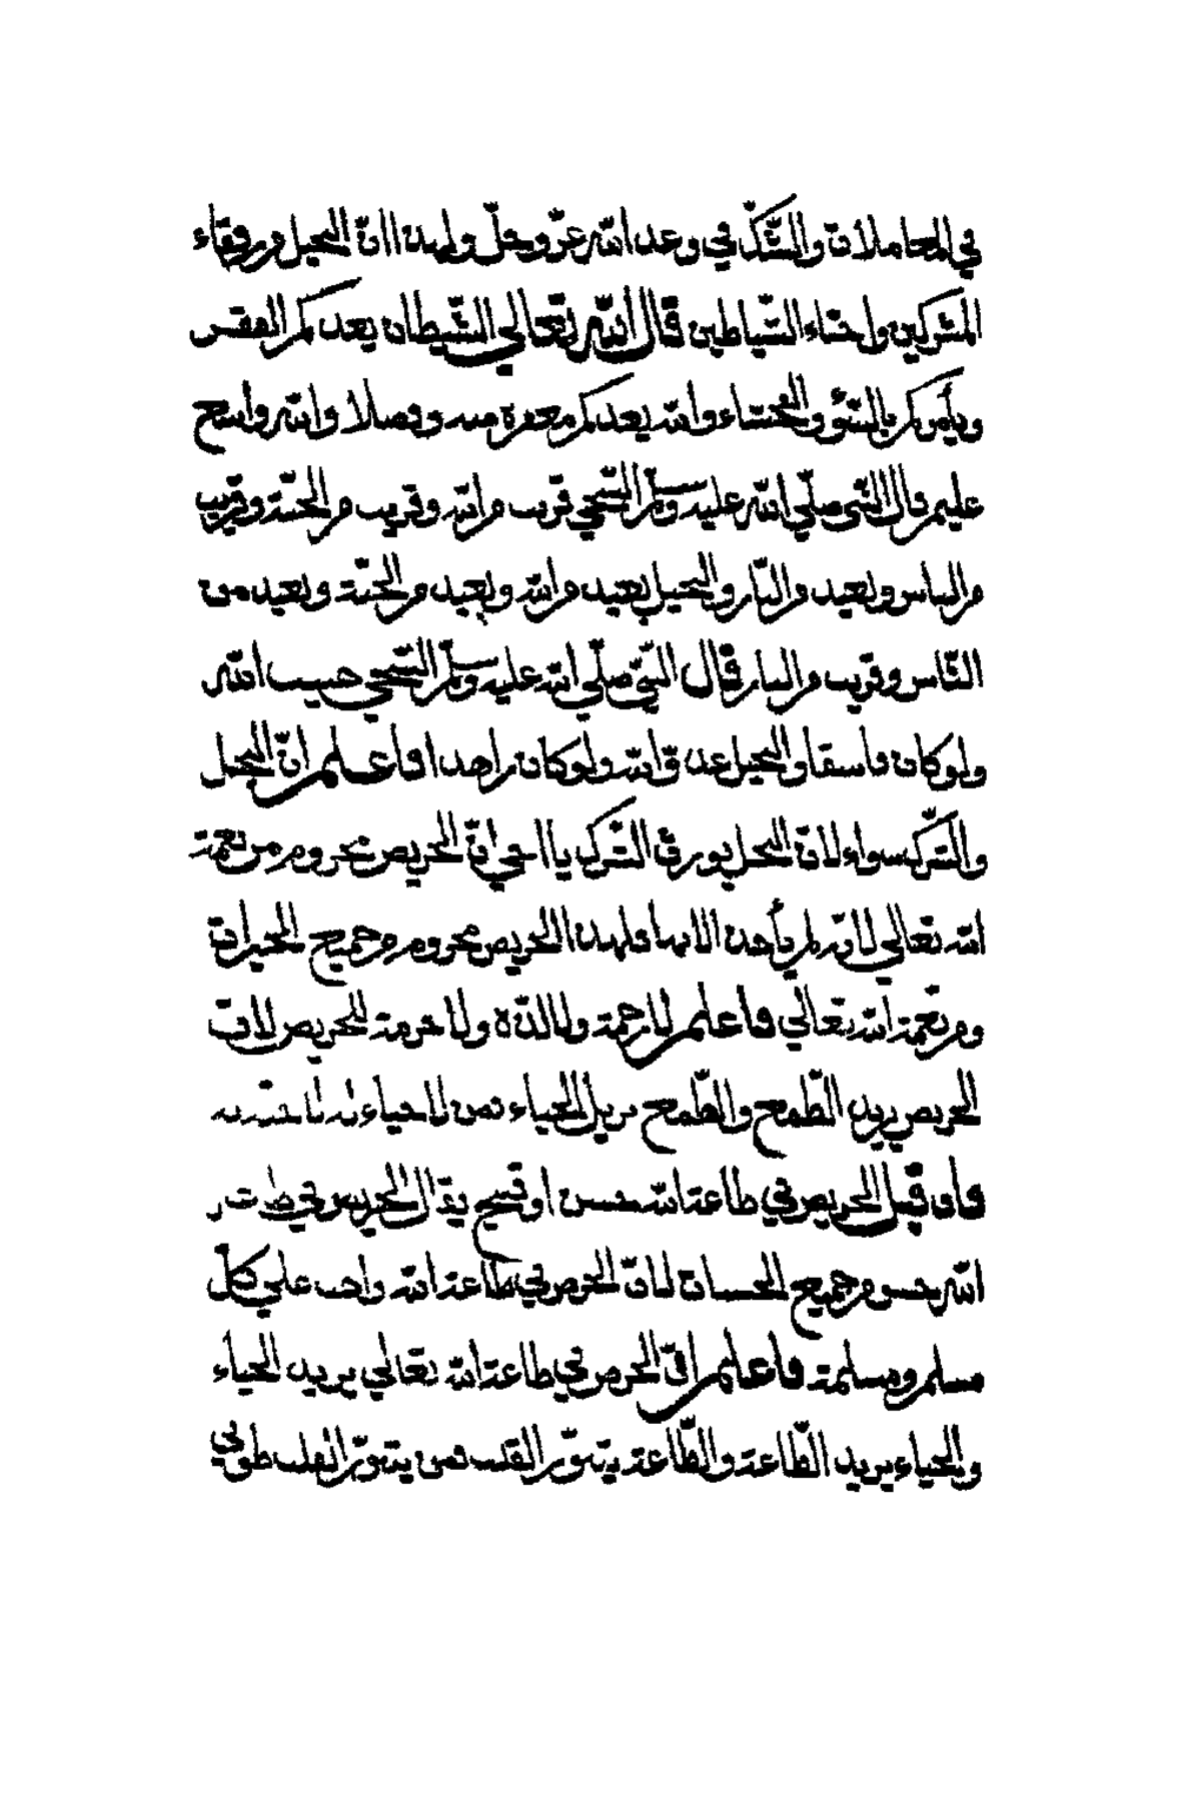 في المعاملات والشّكّ في وعد الله عزّ وجلّ ولهذا انّ البخيل ورفقاء
المشركين واحبّاء الشّياطين قال الله تعالي الشّيطان يعدكم الفقر
ويأمركم بالسّوء والفحشاء والله يعدكم مغفرة منه وفضلا والله واسع
عليم قال النّبي صلّي الله عليه وسلّم السّخي قريب من الله وقريب من الجنّة وقريب
من الناس وبعيد من النّار والبخيل بعيد من الله وبعيد من الجنّة وبعيد من
النّاس وقريب من النار قال النّبيّ صلّي الله عليه وسلّم السّخي حبيب الله
ولو كان فاسقا والبخيل عدوّ الله ولو كان زاهدا فاعلم انّ البخل
والشّرك سواء لانّ البخل يورث الشّرك يا اخي انّ الحريص محروم من نعمة
الله تعالي لانّه لم يأخذ فلهذا الحريص محروم من جميع الخيرات
ومن نعمة الله تعالي فاعلم لا رحمة ولا لذّة ولا حرمة للحريص لانّ
الحريص يريد الطّمع والطّمع يزيل الحياء فمن لا حياء له لا
فان قيل الحريص في طاعة الله حسن او قبيح يقال الحرص في طاعة
الله حسن من جميع الحسنات لانّ الحرص في طاعة الله واجب علي كلّ
مسلم ومسلمة فاعلم انّ الحرص في طاعة الله تعالي يزيد الحياء
والحياء يزيد الطّاعة والطّاعة يتنوّر القلب فمن يتنوّر القلب طوبي